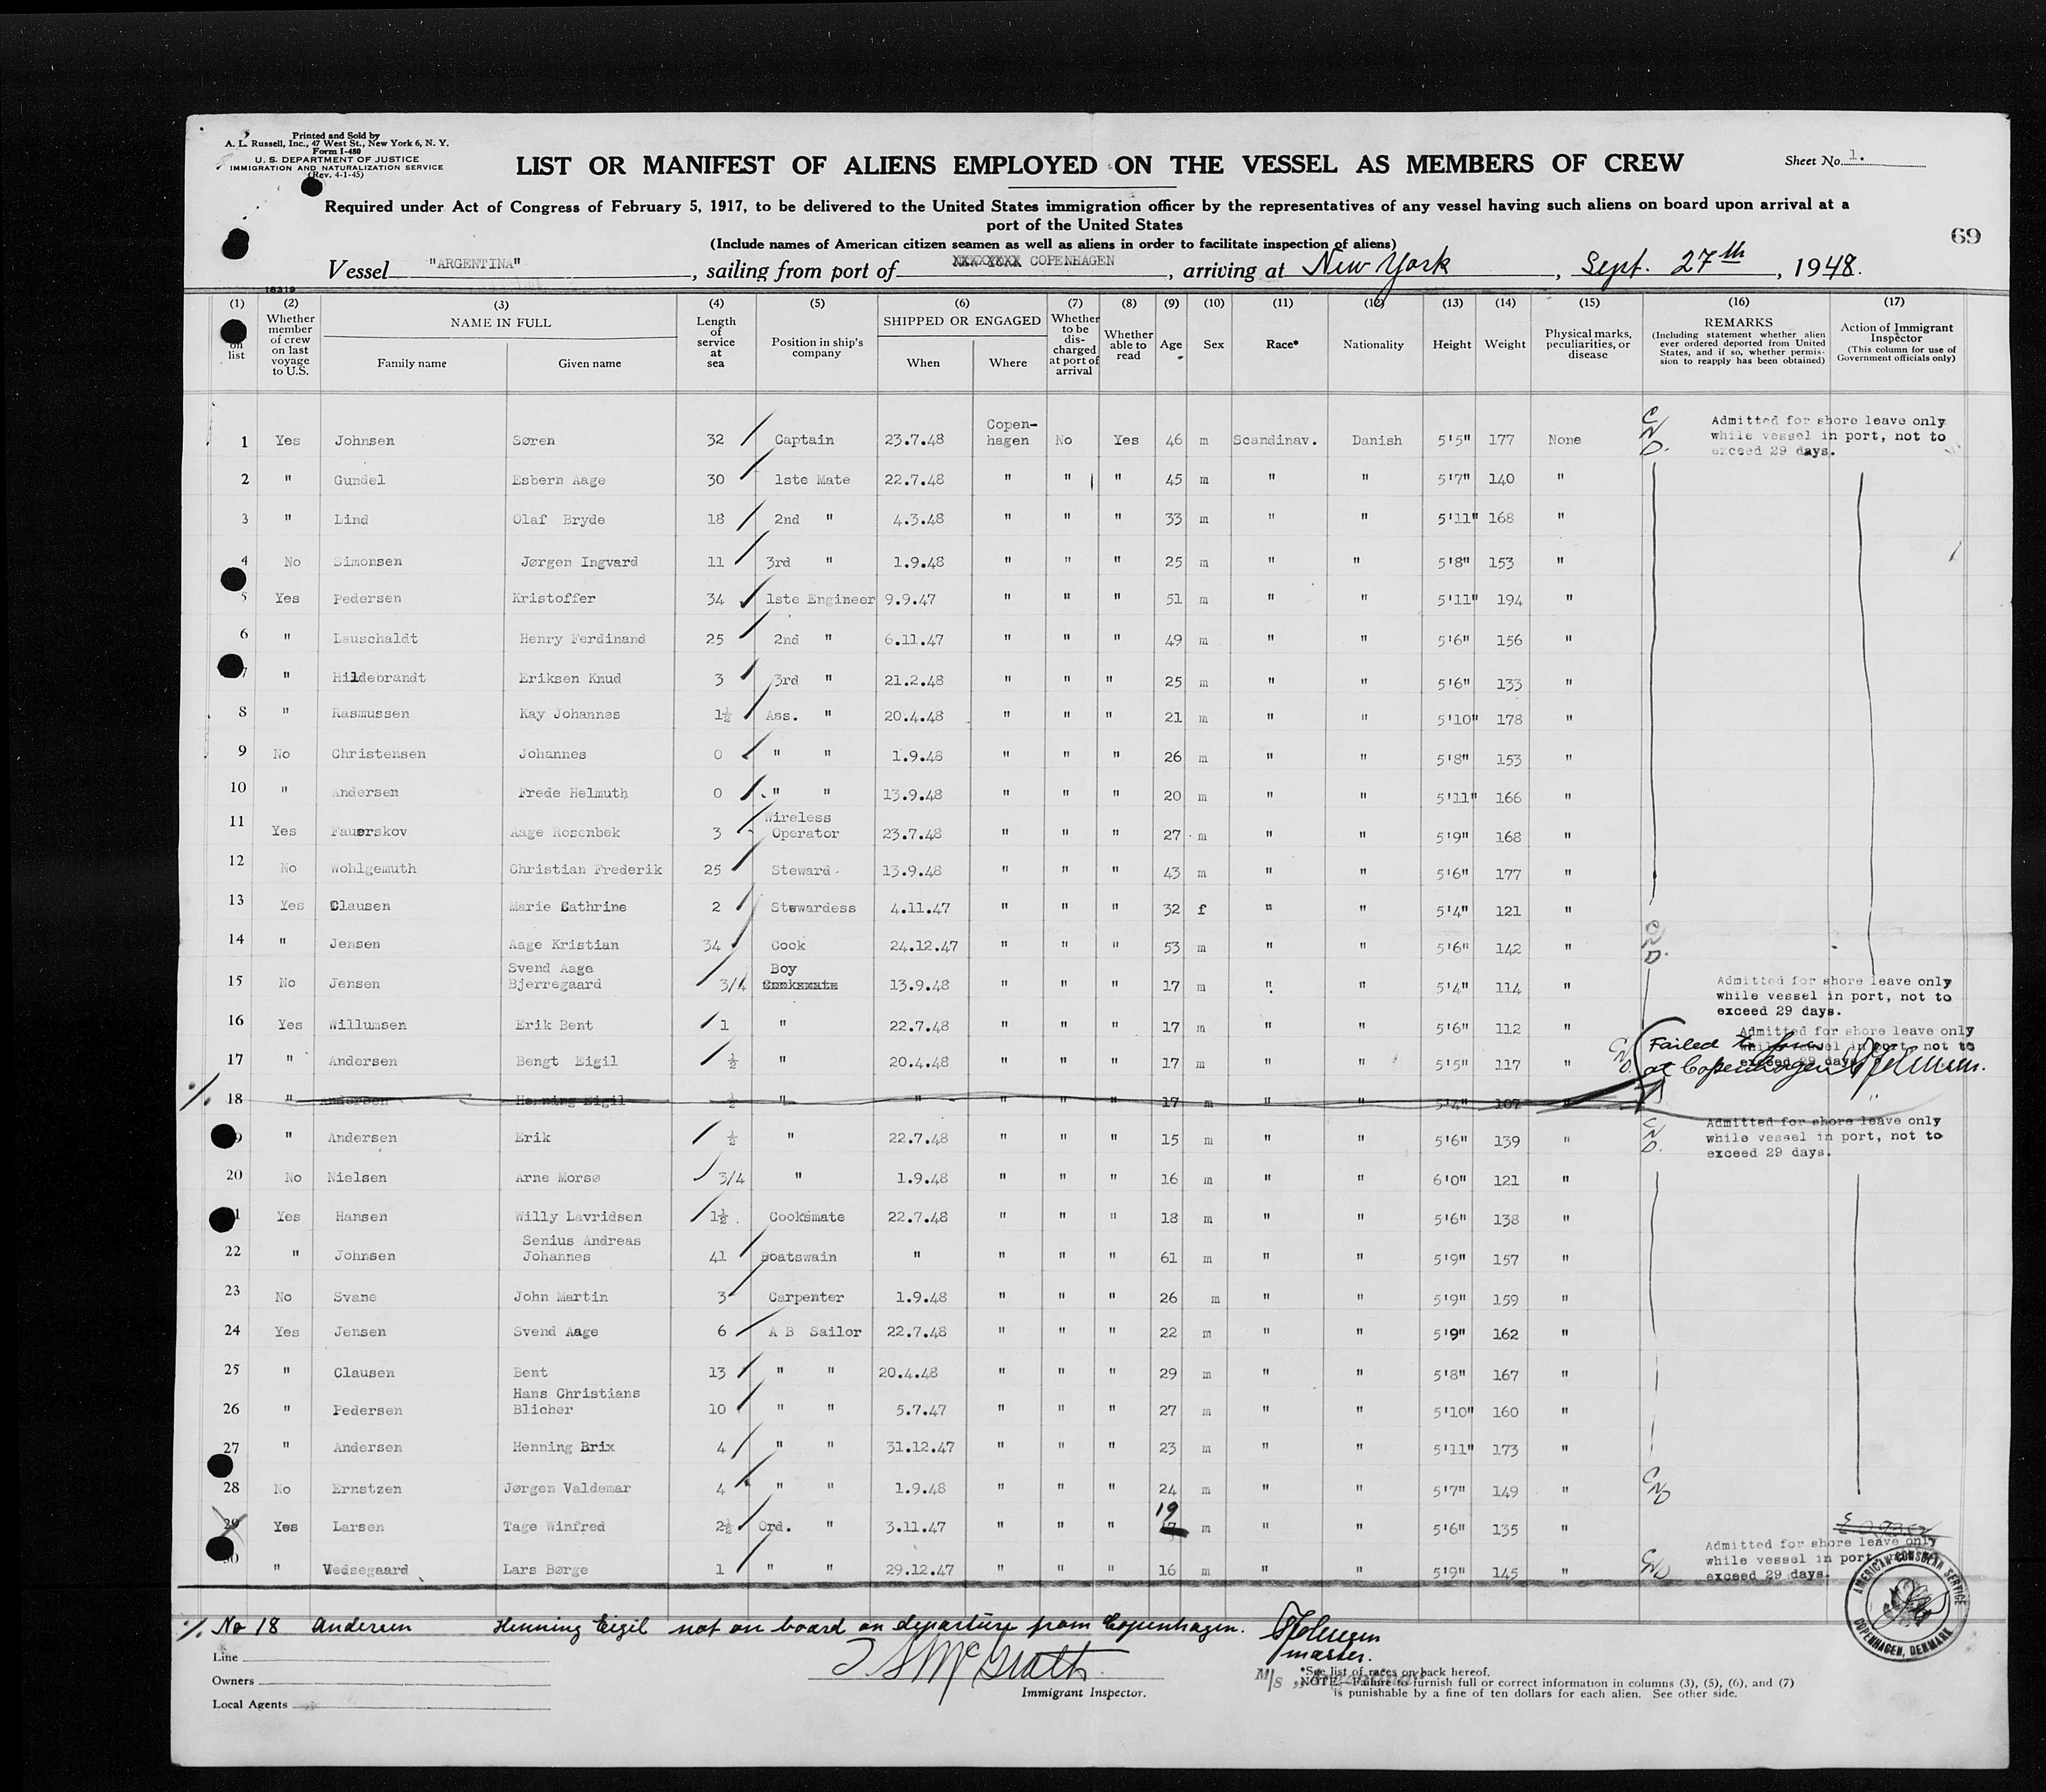 Printed and Sold by
A. L. Russell, Inc., 47 West St., New York 6, N. Y.
Form I-480
U. S. DEPARTMENT OF JUSTICE
IMMIGRATION AND NATURALIZATION SERVICE
(Rev. 4-1-45)
LIST OR MANIFEST OF ALIENS EMPLOYED ON THE VESSEL AS MEMBERS OF CREW
Sheet No. 1.
Required under Act of Congress of February 5, 1917, to be delivered to the United States immigration officer by the representatives of any vessel having such aliens on board upon arrival at a
port of the United States
(Include names of American citizen seamen as well as aliens in order to facilitate inspection of aliens)
69
Vessel "ARGENTINA", sailing from port of NEW YORK COPENHAGEN, arriving at New York, Sept. 27th, 1948.
16319
(1) (2) (3) (4) (5) (6) (7) (8) (9) (10) (11) (12) (13) (14) (15) (16) (17)
on list
Whether member of crew on last voyage to U.S.
NAME IN FULL
Family name Given name
Length of service at sea
Position in ship's company
SHIPPED OR ENGAGED
When Where
Whether to be discharged at port of arrival
Whether able to read
Age Sex Race* Nationality Height Weight
Physical marks, peculiarities, or disease
REMARKS
(Including statement whether alien ever ordered deported from United States, and if so, whether permission to reapply has been obtained)
Action of Immigrant Inspector
(This column for use of Government officials only)
1 Yes Johnsen Søren 32 Captain 23.7.48 Copen-hagen No Yes 46 m Scandinav. Danish 5'5" 177 None
Admitted for shore leave only
while vessel in port, not to
exceed 29 days.
2 " Gundel Esbern Aage 30 1ste Mate 22.7.48 " " " 45 m " " 5'7" 140 "
3 " Lind Olaf Bryde 18 2nd " 4.3.48 " " " 33 m " " 5'11" 168 "
4 No Simonsen Jørgen Ingvard 11 3rd " 1.9.48 " " " 25 m " " 5'8" 153 "
5 Yes Pedersen Kristoffer 34 1ste Engineer 9.9.47 " " " 51 m " " 5'11" 194 "
6 " Lauschaldt Henry Ferdinand 25 2nd " 6.11.47 " " " 49 m " " 5'6" 156 "
7 " Hildebrandt Eriksen Knud 3 3rd " 21.2.48 " " " 25 m " " 5'6" 133 "
8 " Rasmussen Kay Johannes 1½ Ass. " 20.4.48 " " " 21 m " " 5'10" 178 "
9 No Christensen Johannes 0 " " 1.9.48 " " " 26 m " " 5'8" 153 "
10 " Andersen Frede Helmuth 0 " " 13.9.48 " " " 20 m " " 5'11" 166 "
11 Yes Fauerskov Aage Rosenbek 3 Wireless Operator 23.7.48 " " " 27 m " " 5'9" 168 "
12 No Wohlgemuth Christian Frederik 25 Steward 13.9.48 " " " 43 m " " 5'6" 177 "
13 Yes Clausen Marie Cathrine 2 Stewardess 4.11.47 " " " 32 f " " 5'4" 121 "
14 " Jensen Aage Kristian 34 Cook 24.12.47 " " " 53 m " " 5'6" 142 "
15 No Jensen Svend Aage Bjerregaard 3/4 Boy Cooksmate 13.9.48 " " " 17 m " " 5'4" 114 "
Admitted for shore leave only
while vessel in port, not to
exceed 29 days.
16 Yes Willumsen Erik Bent 1 " 22.7.48 " " " 17 m " " 5'6" 112 "
Admitted for shore leave only
while vessel in port, not to
exceed 29 days
17 " Andersen Bengt Eigil ½ " 20.4.48 " " " 17 m " " 5'5" 117 "
Failed to join
at Copenhagen
18 " Andersen Henning Eigil ½ " " " " " 17 m " " 5'4" 107 "
19 " Andersen Erik ½ " 22.7.48 " " " 15 m " " 5'6" 139 "
Admitted for shore leave only
while vessel in port, not to
exceed 29 days.
20 No Nielsen Arne Morsø 3/4 " 1.9.48 " " " 16 m " " 6'0" 121 "
21 Yes Hansen Willy Lavridsen 1½ Cooksmate 22.7.48 " " " 18 m " " 5'6" 138 "
22 " Johnsen Senius Andreas Johannes 41 Boatswain " " " " 61 m " " 5'9" 157 "
23 No Svane John Martin 3 Carpenter 1.9.48 " " " 26 m " " 5'9" 159 "
24 Yes Jensen Svend Aage 6 A B Sailor 22.7.48 " " " 22 m " " 5'9" 162 "
25 " Clausen Bent 13 " " 20.4.48 " " " 29 m " " 5'8" 167 "
26 " Pedersen Hans Christians Blicher 10 " " 5.7.47 " " " 27 m " " 5'10" 160 "
27 " Andersen Henning Brix 4 " " 31.12.47 " " " 23 m " " 5'11" 173 "
28 No Ernstzen Jørgen Valdemar 4 " " 1.9.48 " " " 24 m " " 5'7" 149 "
29 Yes Larsen Tage Winfred 2½ Ord. " 3.11.47 " " " 19 17 m " " 5'6" 135 "
30 " Vedsegaard Lars Børge 1 " " 29.12.47 " " " 16 m " " 5'9" 145 "
Admitted for shore leave only
while vessel in port,
exceed 29 days.
AMERICAN CONSULAR SERVICE
COPENHAGEN, DENMARK
No 18 Andersen Henning Eigil not on board on departure from Copenhagen.
master.
M/s "Argentina"
Line
Owners
Local Agents
Immigrant Inspector.
*See list of races on back hereof.
NOTE—Failure to furnish full or correct information in columns (3), (5), (6), and (7)
is punishable by a fine of ten dollars for each alien. See other side.